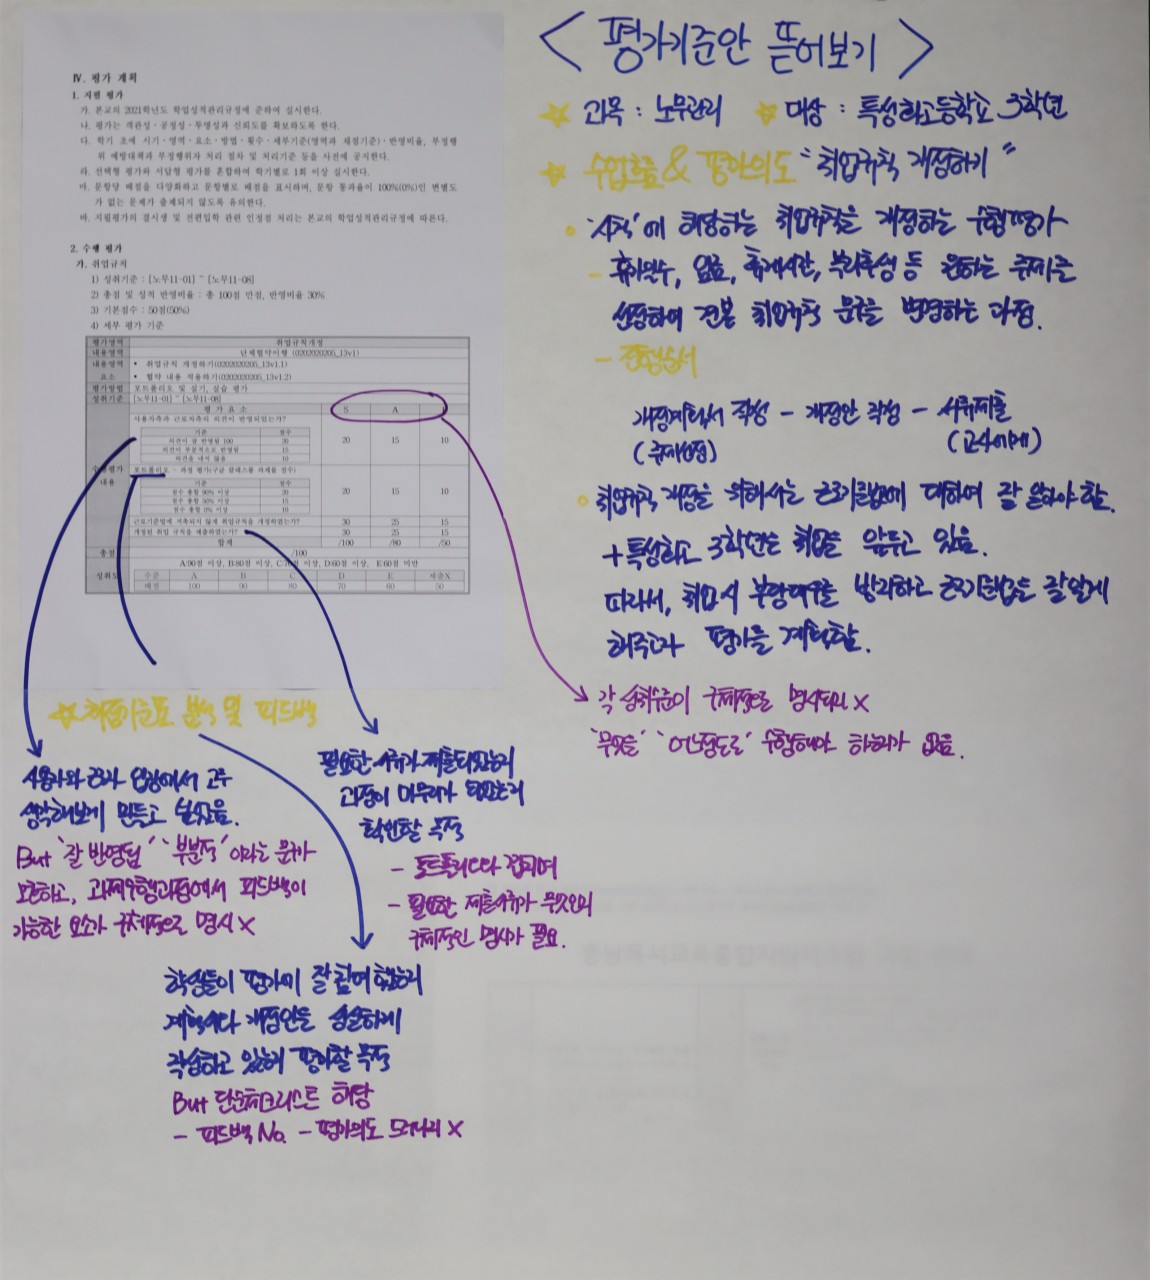 < 평가기준안 뜯어보기 >
☆ 과목 : 노무관리 ☆ 대상 : 특성화고등학교 3학년
☆ 수업흐름 & 평가의도 "취업규칙 개정하기"
'사칙'에 해당하는 취업규칙을 개정하는 수행평가
- 휴가일수, 임금, 휴게시간, 복리후생 등 원하는 주제를
선정하여 견본 취업규칙 문구를 변경하는 과정.
- 진행순서
개정계획서 작성 - 개정안 작성 - 서류제출
(주제선정) (교사에게)
취업규칙 개정을 위해서는 근로기준법에 대하여 잘 알아야 함.
+ 특성화고 3학년은 취업을 앞두고 있음.
따라서, 취업 시 부당대우를 방지하고 근로기준법을 잘 알게
해주고자 평가를 계획함.
각 성취수준이 구체적으로 명시되지 X
'무엇을' '어느정도로' 수행해야 하는지가 없음.
Ⅳ. 평가 계획
1. 지필 평가
가. 본교의 2021학년도 학업성적관리규정에 준하여 실시한다.
나. 평가는 객관성·공정성·투명성과 신뢰도를 확보하도록 한다.
다. 학기 초에 시기·영역·요소·방법·횟수·세부기준(영역과 채점기준)·반영비율, 부정행
위 예방대책과 부정행위자 처리 절차 및 처리기준 등을 사전에 공지한다.
라. 선택형 평가와 서답형 평가를 혼합하여 학기별로 1회 이상 실시한다.
마. 문항당 배점을 다양화하고 문항별로 배점을 표시하며, 문항 통과율이 100%(0%)인 변별도
가 없는 문제가 출제되지 않도록 유의한다.
바. 지필평가의 결시생 및 전편입학 관련 인정점 처리는 본교의 학업성적관리규정에 따른다.
2. 수행 평가
가. 취업규칙
1) 성취기준 : [노무11-01] ~ [노무11-08]
2) 총점 및 성적 반영비율 : 총 100점 만점, 반영비율 30%
3) 기본점수 : 50점(50%)
4) 세부 평가 기준
평가영역 취업규칙개정
내용영역 단체협약이행 (0202020205_13v1)
내용영역 • 취업규칙 개정하기(0202020205_13v1.1)
요소 • 협약 내용 적용하기(0202020205_13v1.2)
평가방법 포트폴리오 및 실기, 실습 평가
성취기준 [노무11-01] ~ [노무11-08]
평 가 요 소 S A
사용자측과 근로자측의 의견이 반영되었는가?
기준 점수
의견이 잘 반영됨 100 20
의견이 부분적으로 반영됨 15
의견을 내지 않음 10
20 15 10
수행평가 포트폴리오 - 과정 평가(구글 클래스룸 과제물 점수)
내용
기준 점수
점수 총합 90% 이상 20
점수 총합 50% 이상 15
점수 총합 0% 이상 10
20 15 10
근로기준법에 저촉되지 않게 취업규칙을 개정하였는가? 30 25 15
개정된 취업 규칙을 제출하였는가? 30 25 15
합계 /100 /80 /50
총점 /100
A:90점 이상, B:80점 이상, C:70점 이상, D:60점 이상, E:60점 미만
성취도 수준 A B C D E 제출X
배점 100 90 80 70 60 50
☆ 채점기준표 분석 및 피드백
사용자와 근로자 입장에서 모두
생각해보게 만들고 싶었음.
But '잘 반영됨' '부분적' 이라는 문구가
모호하고, 과제수행과정에서 피드백이
가능한 요소가 구체적으로 명시 X
필요한 서류가 제출되었는지
과정이 마무리가 되었는지
확인할 목적
- 포트폴리오와 겹치며
- 필요한 제출서류가 무엇인지
구체적인 명시가 필요.
학생들이 평가에 잘 참여했는지
계획서와 개정안을 성실하게
작성하고 있는지 평가할 목적
But 단순체크리스트 해당
- 피드백 No. - 평가의도 드러나지 X